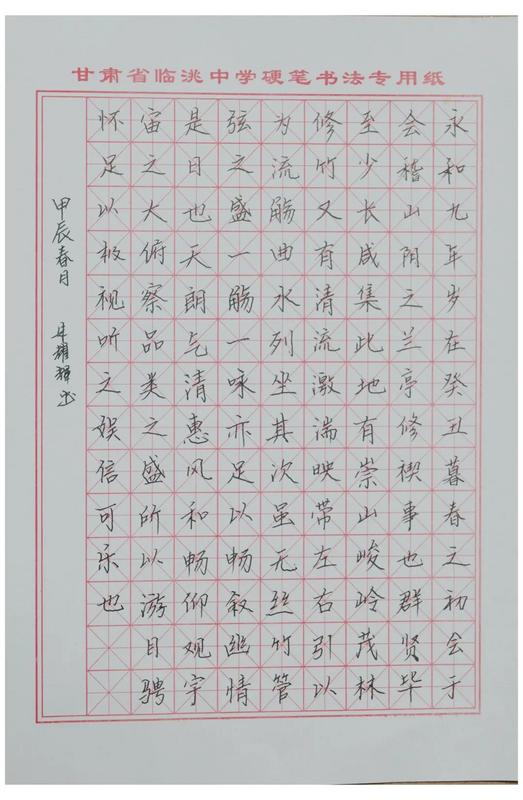 甘肃省临洮中学硬笔书法专用纸
永和九年岁在癸丑暮春之初会于
会稽山阴之兰亭修禊事也群贤毕
至少长咸集此地有崇山峻岭茂林
修竹又有清流激湍映带左右引以
为流觞曲水列坐其次虽无丝竹管
弦之盛一觞一咏亦足以畅叙幽情
是日也天朗气清惠风和畅仰观宇
宙之大俯察品类之盛所以游目骋
怀足以极视听之娱信可乐也
甲辰春月 耀辉书